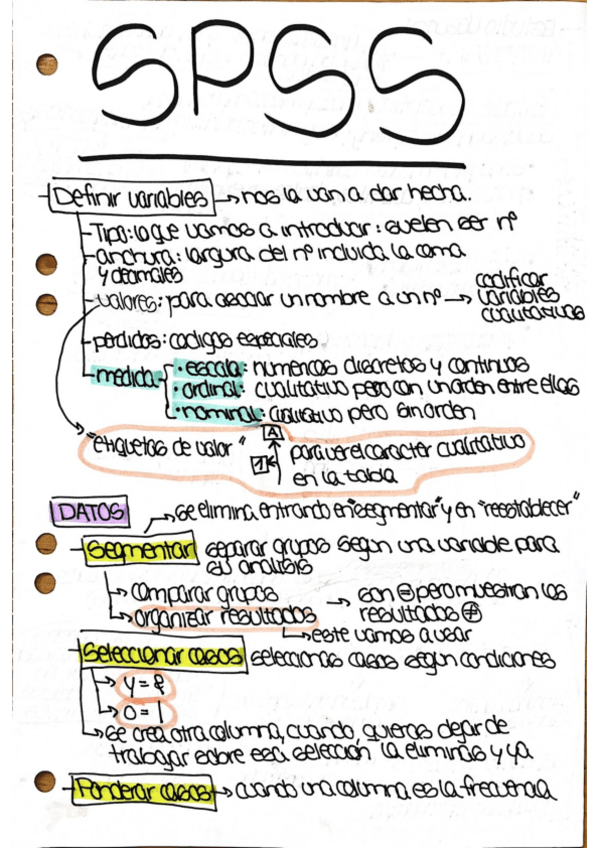 SPSS
Definir variables → nos la van a dar hecha.
- Tipo: lo que vamos a introducir: suelen ser nº
- anchura: largura del nº incluida la coma
y decimales
- valores: para asociar un nombre a un nº → codificar
variables
cualitativas
- perdidos: codigos especiales
- medida:
· escala: numericos discretos y continuos
· ordinal: cualitativo pero con un orden entre ellas
· nominal: cualitativo pero sin orden
"etiquetas de valor" A
1
para ver el caracter cualitativo
en la tabla
DATOS
→ se elimina entrando en "segmentar" y en "reestablecer"
Segmentar separar grupos segun una variable para
su analisis
→ comparar grupos
→ organizar resultados → son ⊖ pero muestran los
resultados ⊕
→ este vamos a usar
Seleccionar casos seleccionas casos segun condiciones
→ y = &
→ o = |
→ se crea otra columna, cuando quieras dejar de
trabajar sobre esa selección la eliminas y ya
Ponderar casos → cuando una columna es la frecuencia